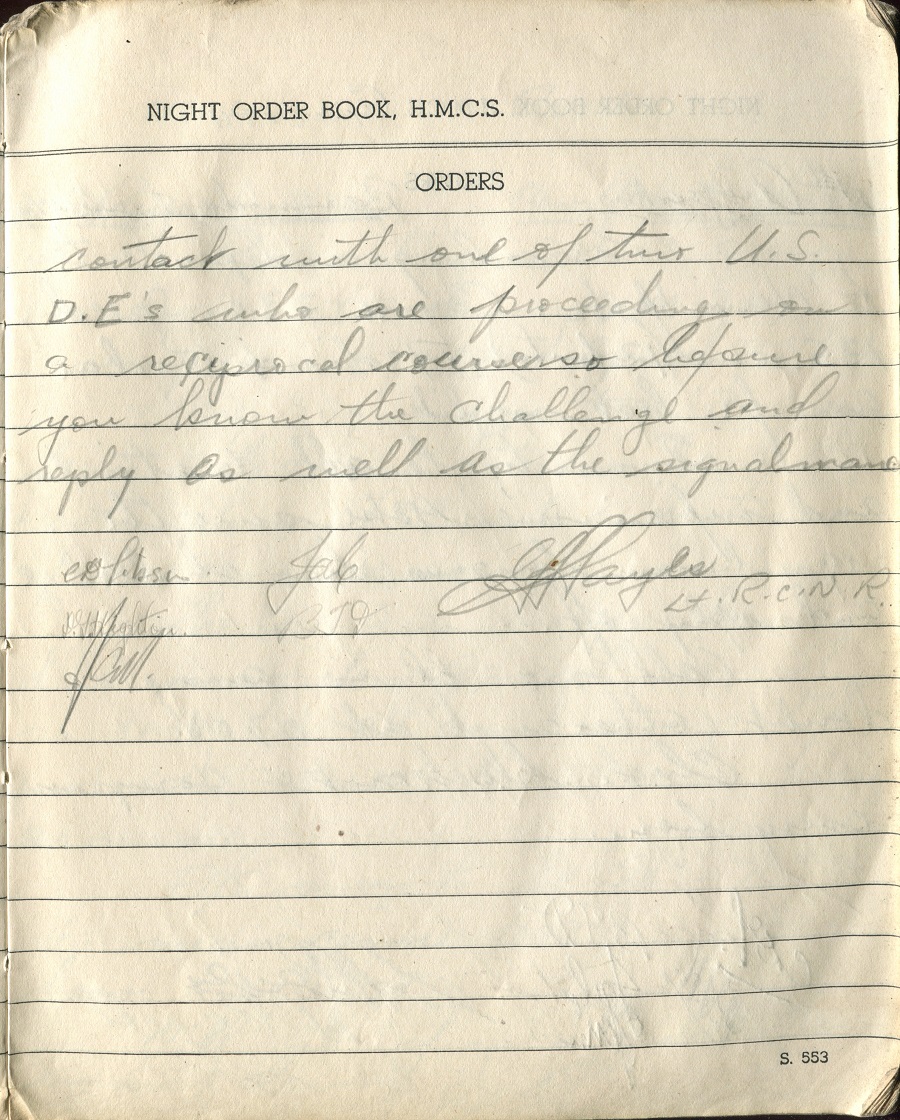 NIGHT ORDER BOOK, H.M.C.S.
ORDERS
contact with one of two U.S.
D.E's who are proceeding on
a reciprocal course so be sure
you know the challenge and
reply as well as the signalman
Hayes
Lt. R.C.N.R.
S. 553